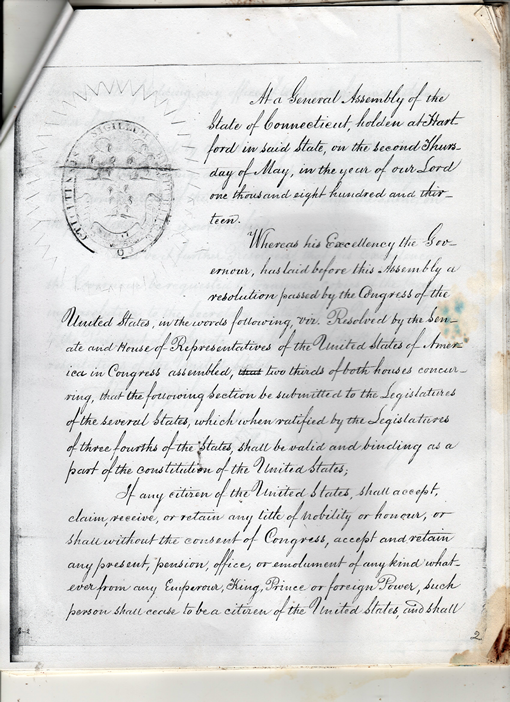 At a General Assembly of the
State of Connecticut, holden at Hart-
ford in said State, on the second Thurs-
day of May, in the year of our Lord
one thousand eight hundred and thir-
teen.
Whereas his Excellency the Gov-
ernour, has laid before this Assembly a
resolution passed by the Congress of the
United States, in the words following, viz. Resolved by the Sen-
ate and House of Representatives of the United States of Amer-
ica in Congress assembled, that two thirds of both houses concur-
ring, that the following section be submitted to the Legislatures
of the several States, which when ratified by the Legislatures
of three fourths of the States, shall be valid and binding as a
part of the constitution of the United States;
If any citizen of the United States, shall accept,
claim, receive, or retain any title of nobility or honour, or
shall without the consent of Congress, accept and retain
any present, pension, office, or emolument of any kind what-
ever from any Emperour, King, Prince or foreign Power, such
person shall cease to be a citizen of the United States, and shall
2